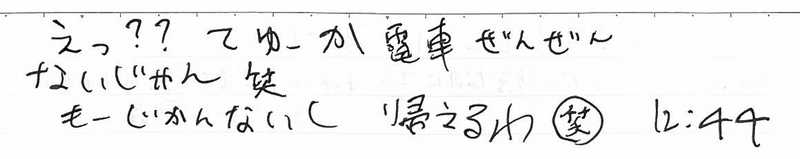 えっ?? てゆーか 電車 ぜんぜん
ないじゃん 笑
もーじかんないし 帰えるわ ㊗笑 12:44